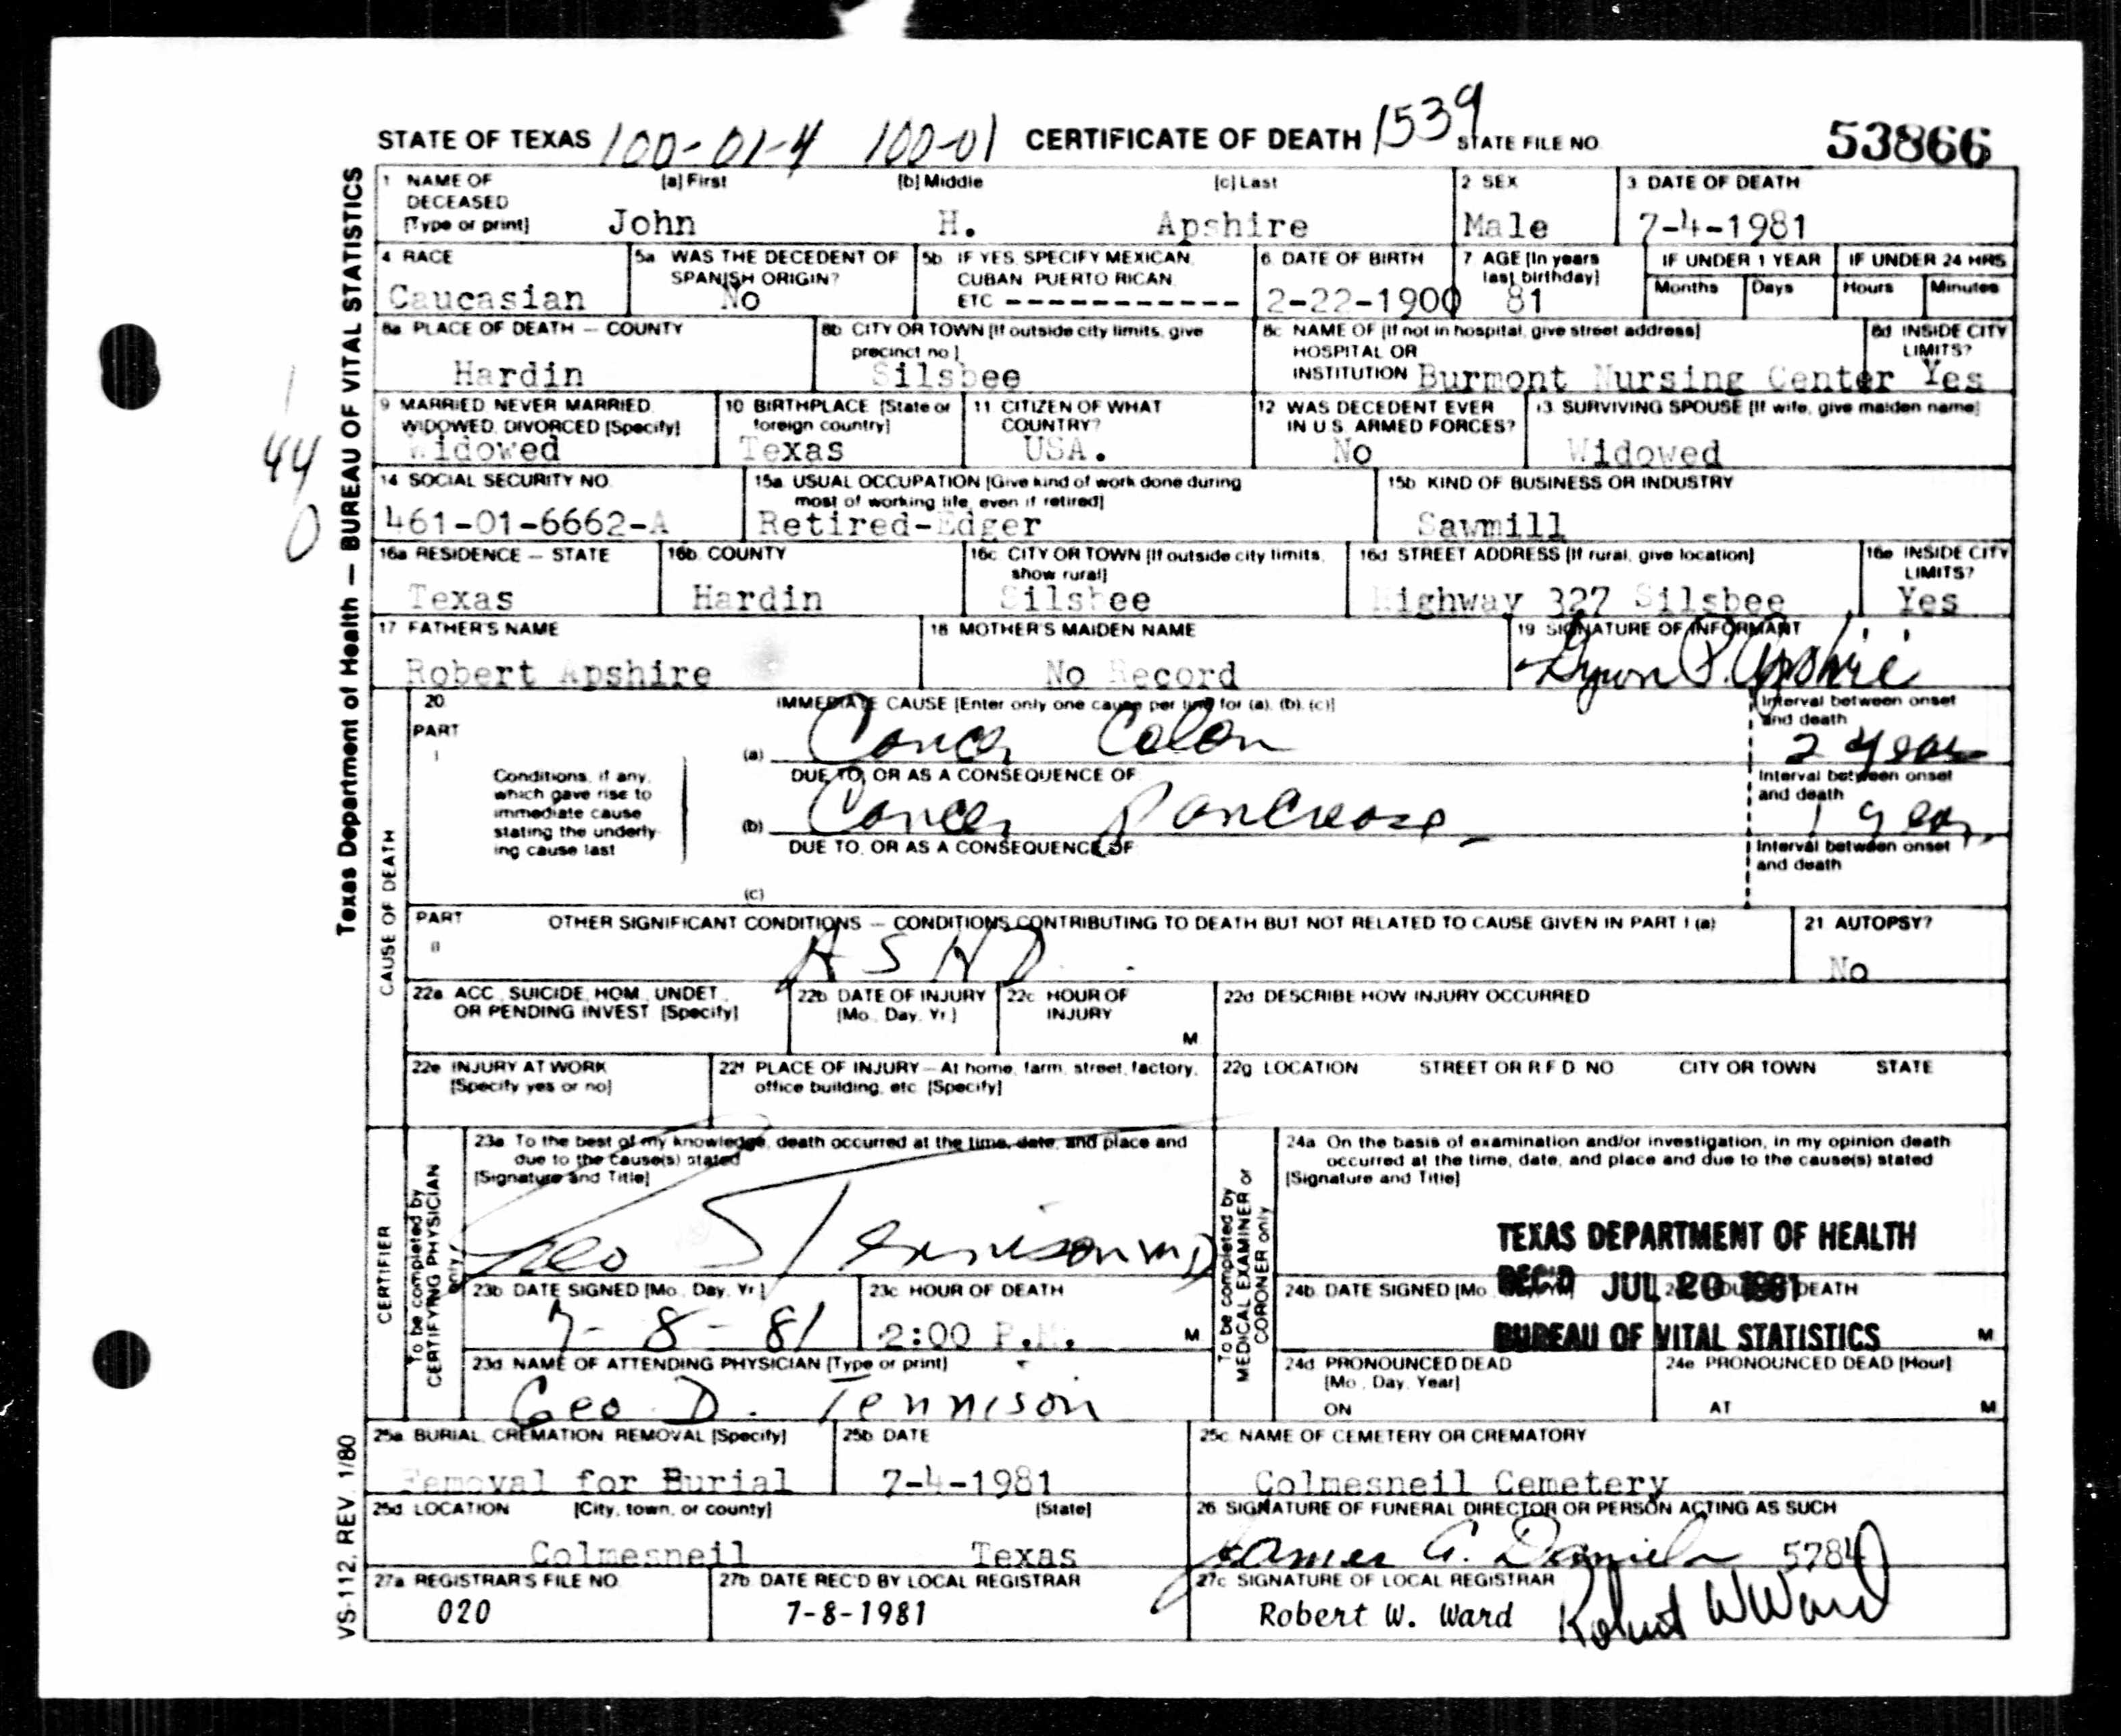 STATE OF TEXAS 100-01-4 100-01 CERTIFICATE OF DEATH 1539 STATE FILE NO. 53866
Texas Department of Health — BUREAU OF VITAL STATISTICS
1 NAME OF DECEASED [Type or print] [a] First [b] Middle [c] Last 2 SEX 3 DATE OF DEATH
John H. Apshire Male 7-4-1981
4 RACE 5a WAS THE DECEDENT OF SPANISH ORIGIN? 5b IF YES, SPECIFY MEXICAN, CUBAN, PUERTO RICAN, ETC 6 DATE OF BIRTH 7 AGE [In years last birthday] IF UNDER 1 YEAR Months Days IF UNDER 24 HRS Hours Minutes
Caucasian No ------------ 2-22-1900 81
8a PLACE OF DEATH — COUNTY 8b CITY OR TOWN [If outside city limits, give precinct no.] 8c NAME OF [If not in hospital, give street address] HOSPITAL OR INSTITUTION 8d INSIDE CITY LIMITS?
Hardin Silsbee Burmont Nursing Center Yes
9 MARRIED, NEVER MARRIED, WIDOWED, DIVORCED [Specify] 10 BIRTHPLACE [State or foreign country] 11 CITIZEN OF WHAT COUNTRY? 12 WAS DECEDENT EVER IN U.S. ARMED FORCES? 13 SURVIVING SPOUSE [If wife, give maiden name]
Widowed Texas USA. No Widowed
44
0
14 SOCIAL SECURITY NO. 15a USUAL OCCUPATION [Give kind of work done during most of working life, even if retired] 15b KIND OF BUSINESS OR INDUSTRY
461-01-6662-A Retired-Edger Sawmill
16a RESIDENCE — STATE 16b COUNTY 16c CITY OR TOWN [If outside city limits, show rural] 16d STREET ADDRESS [If rural, give location] 16e INSIDE CITY LIMITS?
Texas Hardin Silsbee Highway 327 Silsbee Yes
17 FATHER'S NAME 18 MOTHER'S MAIDEN NAME 19 SIGNATURE OF INFORMANT
Robert Apshire No Record P. Apshire
CAUSE OF DEATH
20 PART I IMMEDIATE CAUSE [Enter only one cause per line for (a), (b), (c)] Interval between onset and death
(a) Cancer Colon 2 years
Conditions, if any, which gave rise to immediate cause stating the underlying cause last
DUE TO, OR AS A CONSEQUENCE OF Interval between onset and death
(b) Cancer Pancreas 1 year
DUE TO, OR AS A CONSEQUENCE OF Interval between onset and death
(c)
PART II OTHER SIGNIFICANT CONDITIONS — CONDITIONS CONTRIBUTING TO DEATH BUT NOT RELATED TO CAUSE GIVEN IN PART I (a) 21 AUTOPSY?
A S H D No
22a ACC., SUICIDE, HOM., UNDET., OR PENDING INVEST. [Specify] 22b DATE OF INJURY [Mo., Day, Yr.] 22c HOUR OF INJURY M 22d DESCRIBE HOW INJURY OCCURRED
22e INJURY AT WORK [Specify yes or no] 22f PLACE OF INJURY — At home, farm, street, factory, office building, etc. [Specify] 22g LOCATION STREET OR R.F.D. NO. CITY OR TOWN STATE
CERTIFIER
To be completed by CERTIFYING PHYSICIAN only
23a To the best of my knowledge, death occurred at the time, date, and place and due to the cause(s) stated
[Signature and Title]
Geo Tennison MD
23b DATE SIGNED [Mo., Day, Yr.] 23c HOUR OF DEATH
7-8-81 2:00 P.M. M
23d NAME OF ATTENDING PHYSICIAN [Type or print]
Geo D. Tennison
To be completed by MEDICAL EXAMINER or CORONER only
24a On the basis of examination and/or investigation, in my opinion death occurred at the time, date, and place and due to the cause(s) stated
[Signature and Title]
TEXAS DEPARTMENT OF HEALTH
REC'D JUL 20 1981
BUREAU OF VITAL STATISTICS
24b DATE SIGNED [Mo DEATH M
24d PRONOUNCED DEAD [Mo., Day, Year] ON 24e PRONOUNCED DEAD [Hour] AT M
25a BURIAL, CREMATION, REMOVAL [Specify] 25b DATE 25c NAME OF CEMETERY OR CREMATORY
Removal for Burial 7-4-1981 Colmesneil Cemetery
25d LOCATION [City, town, or county] [State] 26 SIGNATURE OF FUNERAL DIRECTOR OR PERSON ACTING AS SUCH
Colmesneil Texas James A. Daniels 5784
27a REGISTRAR'S FILE NO. 27b DATE REC'D BY LOCAL REGISTRAR 27c SIGNATURE OF LOCAL REGISTRAR
020 7-8-1981 Robert W. Ward Robert W Ward
VS-112, REV. 1/80